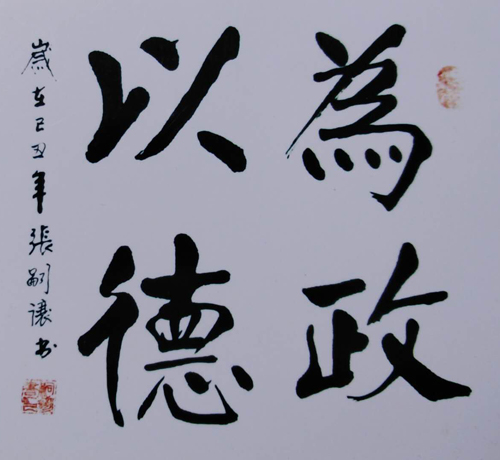 為政
以德
歲在己丑年張嗣讓书